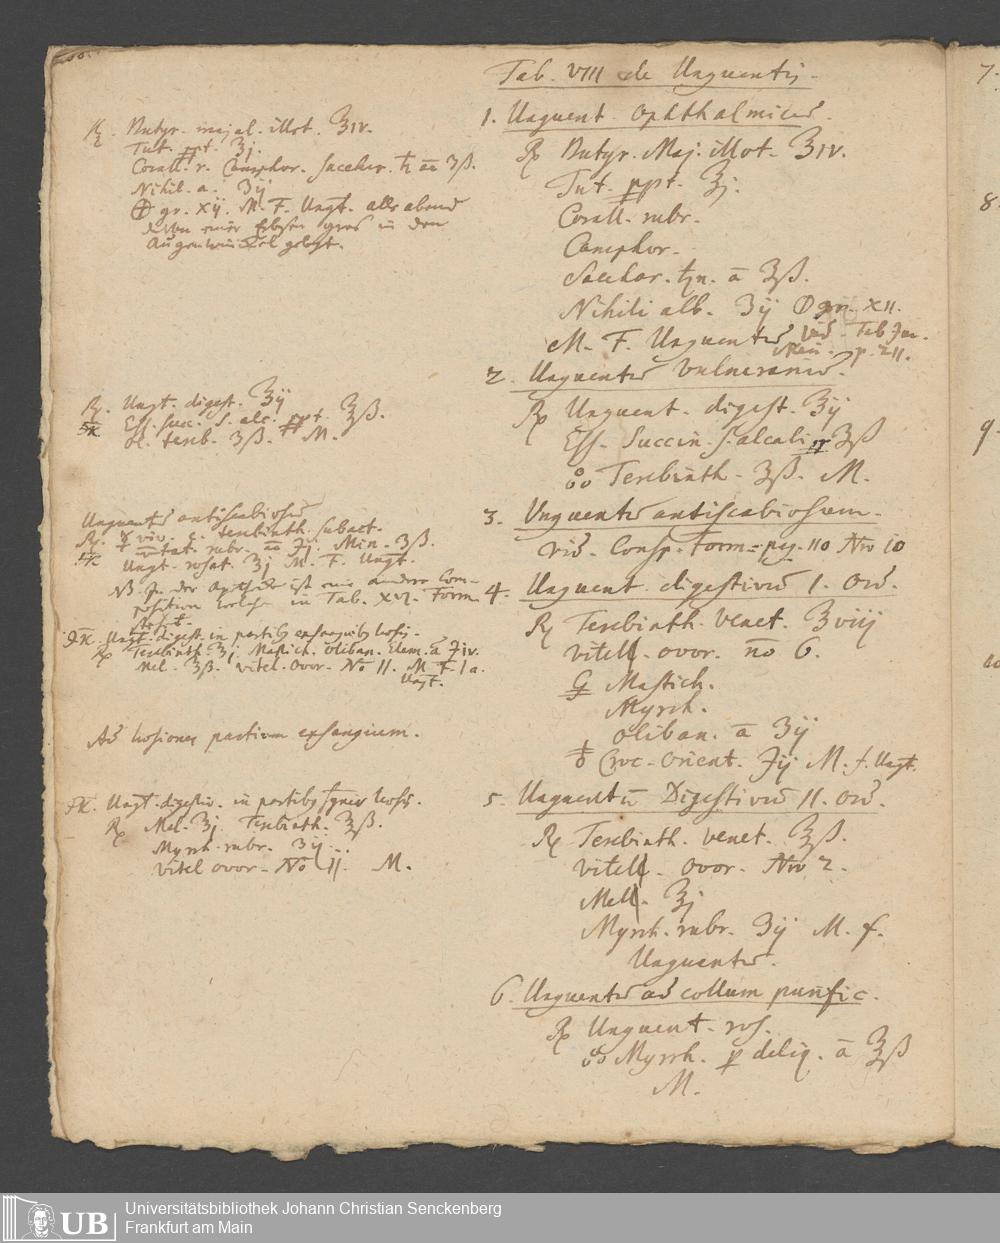 Tab. VIII de Unguentis.
1. Unguent. Ophthalmicũ.
℞ Butyr. Maj. illot. ℥IV.
Tut. ppt. ℥j.
Corall. rubr.
Camphor.
Sacchar. ā ℥ß.
Nihili alb. ʒij gr. XII.
M. F. Unguentũ vid. Tab.
p. 211.
2. Unguentũ Vulnerariũ.
℞ Unguent. digest. ℥ij
Ess. Succin. s. alcali ℥ß
Terebinth. ʒß. M.
3. Unguentũ antiscabiosum.
vid. Consp. Form. pag. 110 No 10
4. Unguent. digestivũ I. Ord.
℞ Terebinth. venet. ℥viij
vitell. ovor. no 6.
G Mastich.
Myrrh.
Oliban. ā ʒij
Croc. Orient. ℈ij M. f. Ungt.
5. Unguentũ Digestivũ II. Ord.
℞ Terebinth. venet. ℥ß.
vitell. Ovor. No 2.
Mell. ℥j
Myrrh. rubr. ʒij M. f.
Unguentũ.
6. Unguentũ ad collum
℞ Unguent. ros.
Myrrh. p deliq. ā ℥ß
M.
℞. Butyr. majal. illot. ℥IV.
Tut. ppt. ℥j.
Corall. r. Camphor. Sacchar. ♄ āā ʒß.
Nihil. a. ʒij
gr. xij. M. F. Ungt. alle abend
einer Erbsen gros in den
Augenwinckel gelegt.
℞. Ungt. digest. ℥ij
Ess. succ. s. alc. ppt. ℥ß.
ol. tereb. ʒß. M.
Unguentũ antiscabiosũ
℞. ☿ viv. c. terebinth. subact.
rubr. āā ℥j. Min. ℥ß.
Ungt. rosat. ℥j M. F. Ungt.
NB. In der Apothek ist eine andere Com-
position welche in Tab. XVI. Form.
Ungt. digest. in partibg exsanguibg laesis.
℞ Terebinth. ℥j. Mastich. Oliban. Elem. ā ℈iv.
Mel. ℥ß. vitel. Ovor. No II. M. F. l. a.
Ungt.
Ad laesiones partium exsangium.
Ungt. digestiv. in partibg laesis.
℞ Mel. ℥j. Terebinth. ℥ß.
Myrrh. rubr. ʒij.
Vitel ovor. No II. M.
7.
8.
9.
10
Universitätsbibliothek Johann Christian Senckenberg
Frankfurt am Main
UB